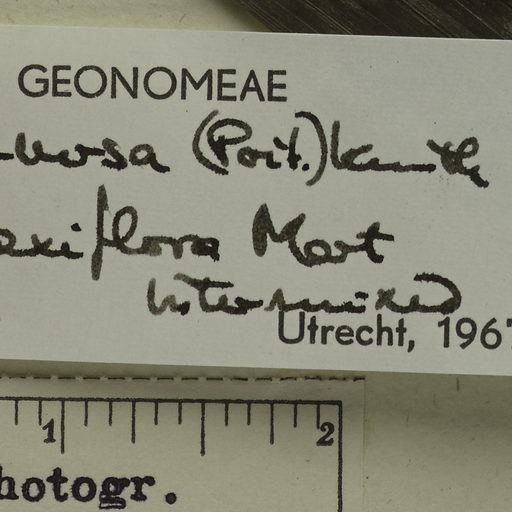 GEONOMEAE
(Poit.) Kunth
laxiflora Mart
intermixed
Utrecht, 1967
1 2
hotogr.